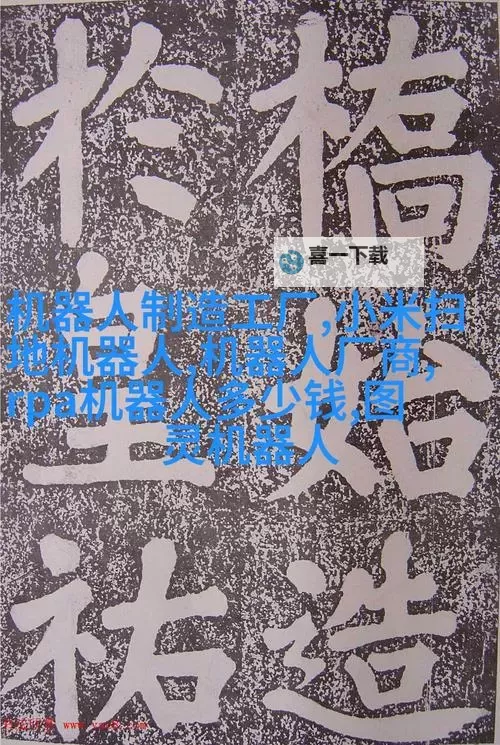 橋始造
於皇祐
喜一下载
机器人制造工厂,小米扫
地机器人,机器人厂商,
rpa机器人多少钱,图
灵机器人